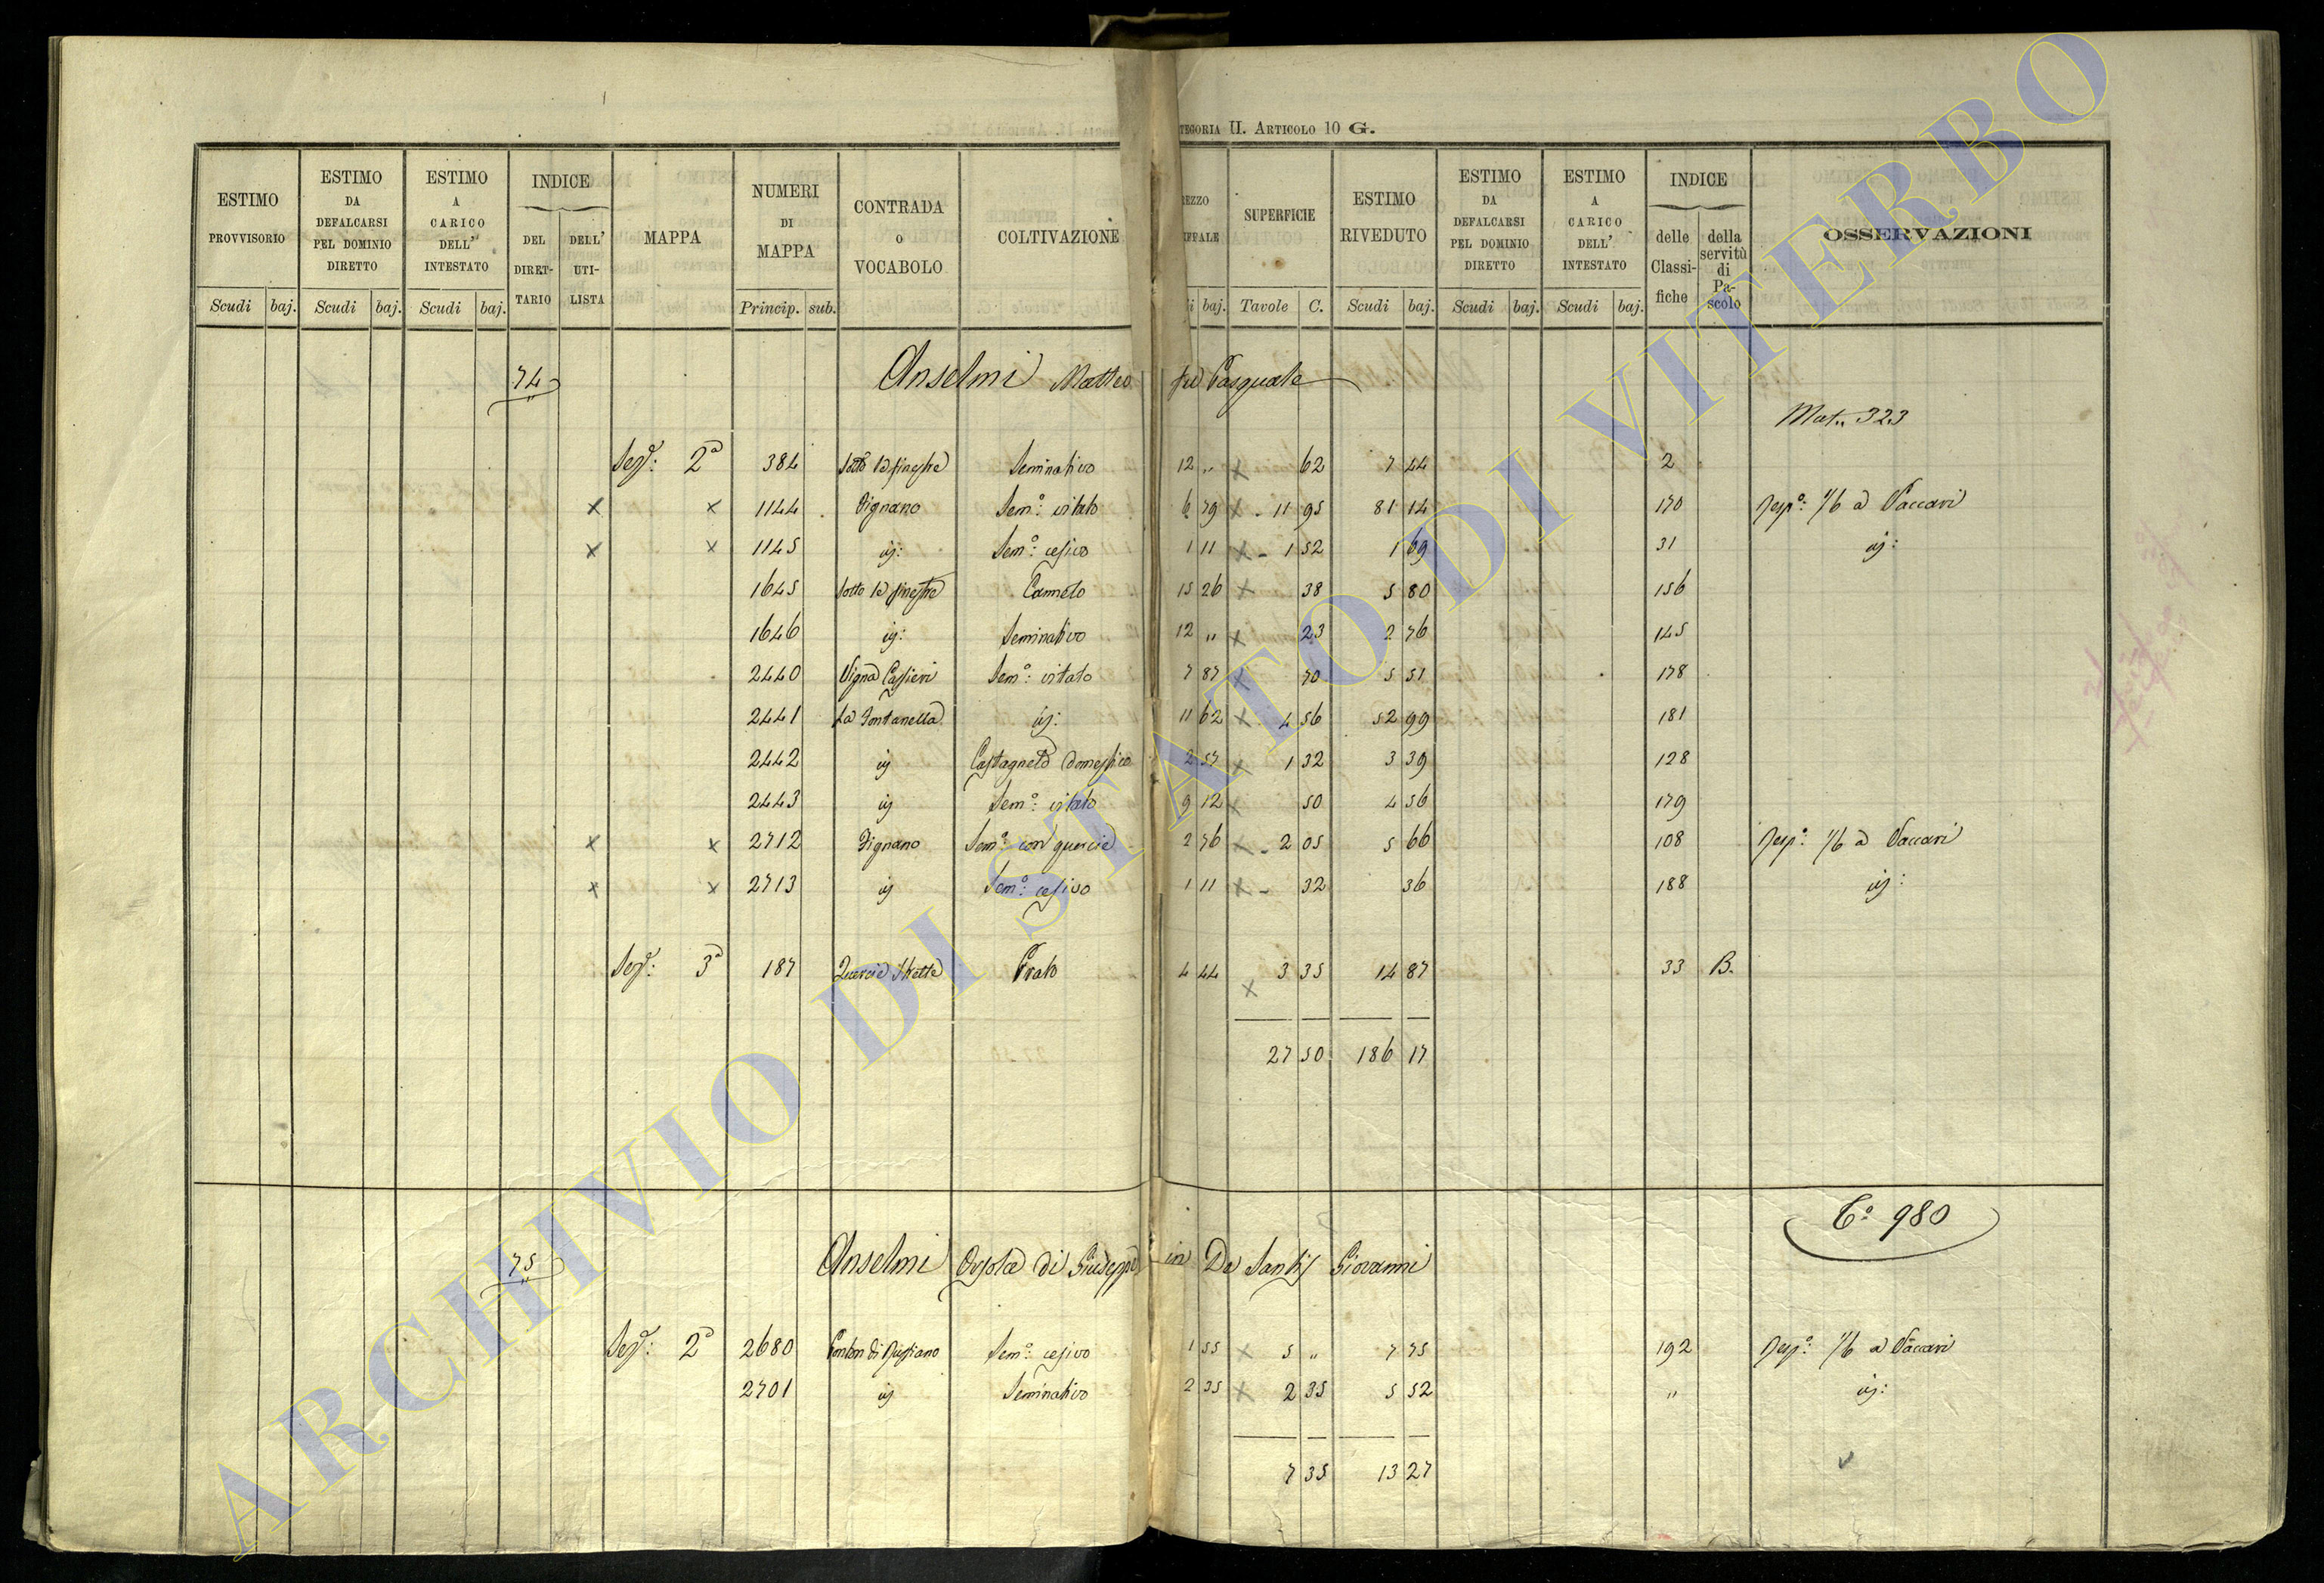 TEGORIA II. ARTICOLO 10 G.
ESTIMO PROVVISORIO Scudi baj.
ESTIMO DA DEFALCARSI PEL DOMINIO DIRETTO Scudi baj.
ESTIMO A CARICO DELL' INTESTATO Scudi baj.
INDICE DEL DIRET- TARIO DELL' UTI- LISTA
MAPPA
NUMERI DI MAPPA Princip. sub.
CONTRADA O VOCABOLO
COLTIVAZIONE
REZZO IFFALE i baj.
SUPERFICIE Tavole C.
ESTIMO RIVEDUTO Scudi baj.
ESTIMO DA DEFALCARSI PEL DOMINIO DIRETTO Scudi baj.
ESTIMO A CARICO DELL' INTESTATO Scudi baj.
INDICE delle Classi- fiche della servitù di Pa- scolo
OSSERVAZIONI
74 Anselmi Matteo fu Pasquale
Mat.. 323
2ª 384 Sotto le finestre Seminativo 12 " x 62 7 44 2
x x 1144 Fignano Sem°: vitato 6 79 x 11 95 81 14 170 1/6 a Vaccari
x x 1145 id: Sem°: cesivo 1 11 x 1 52 1 69 31 id:
1645 Sotto le finestre Canneto 15 26 x 38 5 80 156
1646 id: Seminativo 12 " x 23 2 76 145
2440 Vigna Cassieri Sem°: vitato 7 87 x 70 5 51 178
2441 La Fontanella id: 11 62 x 4 56 52 99 181
2442 id Castagneto domestico 2 57 x 1 32 3 39 128
2443 id Sem°: vitato 9 12 x 50 4 56 179
x x 2712 Fignano Sem°: con quercie 2 76 x 2 05 5 66 108 1/6 a Vaccari
x x 2713 id Sem°: cesivo 1 11 x 32 36 188 id:
3ª 187 Quercie Strette Prato 4 44 x 3 35 14 87 33 B.
27 50 186 17
C° 980
75 Anselmi Orsola di Giuseppe in De Santis Giovanni
2ª 2680 di Sem°: cesivo 1 55 x 5 " 7 75 192 1/6 a Vaccari
2701 id Seminativo 2 35 x 2 35 5 52 " id:
7 35 13 27
ARCHIVIO DI STATO DI VITERBO